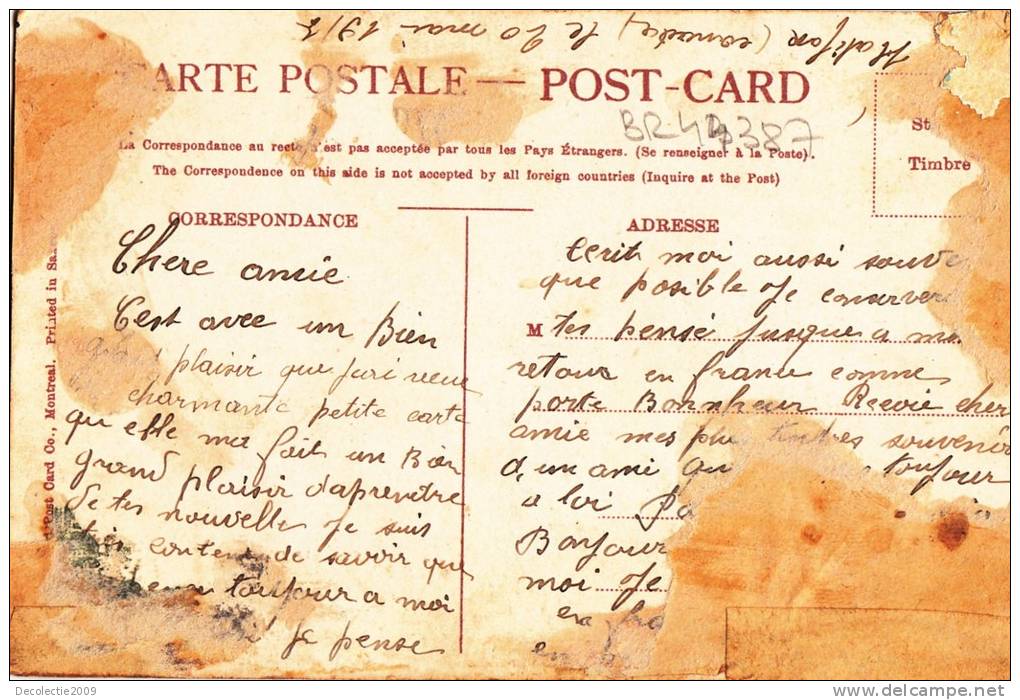 Halifax (canada) le 20 mai 191
CARTE POSTALE — POST-CARD
BR.44387
La Correspondance au recto n'est pas acceptée par tous les Pays Étrangers. (Se renseigner à la Poste).
The Correspondence on this side is not accepted by all foreign countries (Inquire at the Post)
St
Timbre
CORRESPONDANCE
Chere amie
C'est avec un Bien
grand plaisir que jai recue
charmante petite carte
qu elle ma fait un Bien
grand plaisir d'aprendre
de tes nouvelles je suis
tres content de savoir que
toujour a moi
je pense
ADRESSE
Ecrit moi aussi souve
que posible Je conserver
M tes pensé jusque a mon
retour en france comme
porte Bonheur Recoie cher
amie mes plus tendres souvenir
d'un ami qu toujour
a toi
Bonjour
moi Je
en
en
d Post Card Co., Montreal. Printed in Sa
Decolectie2009
delcampe.net